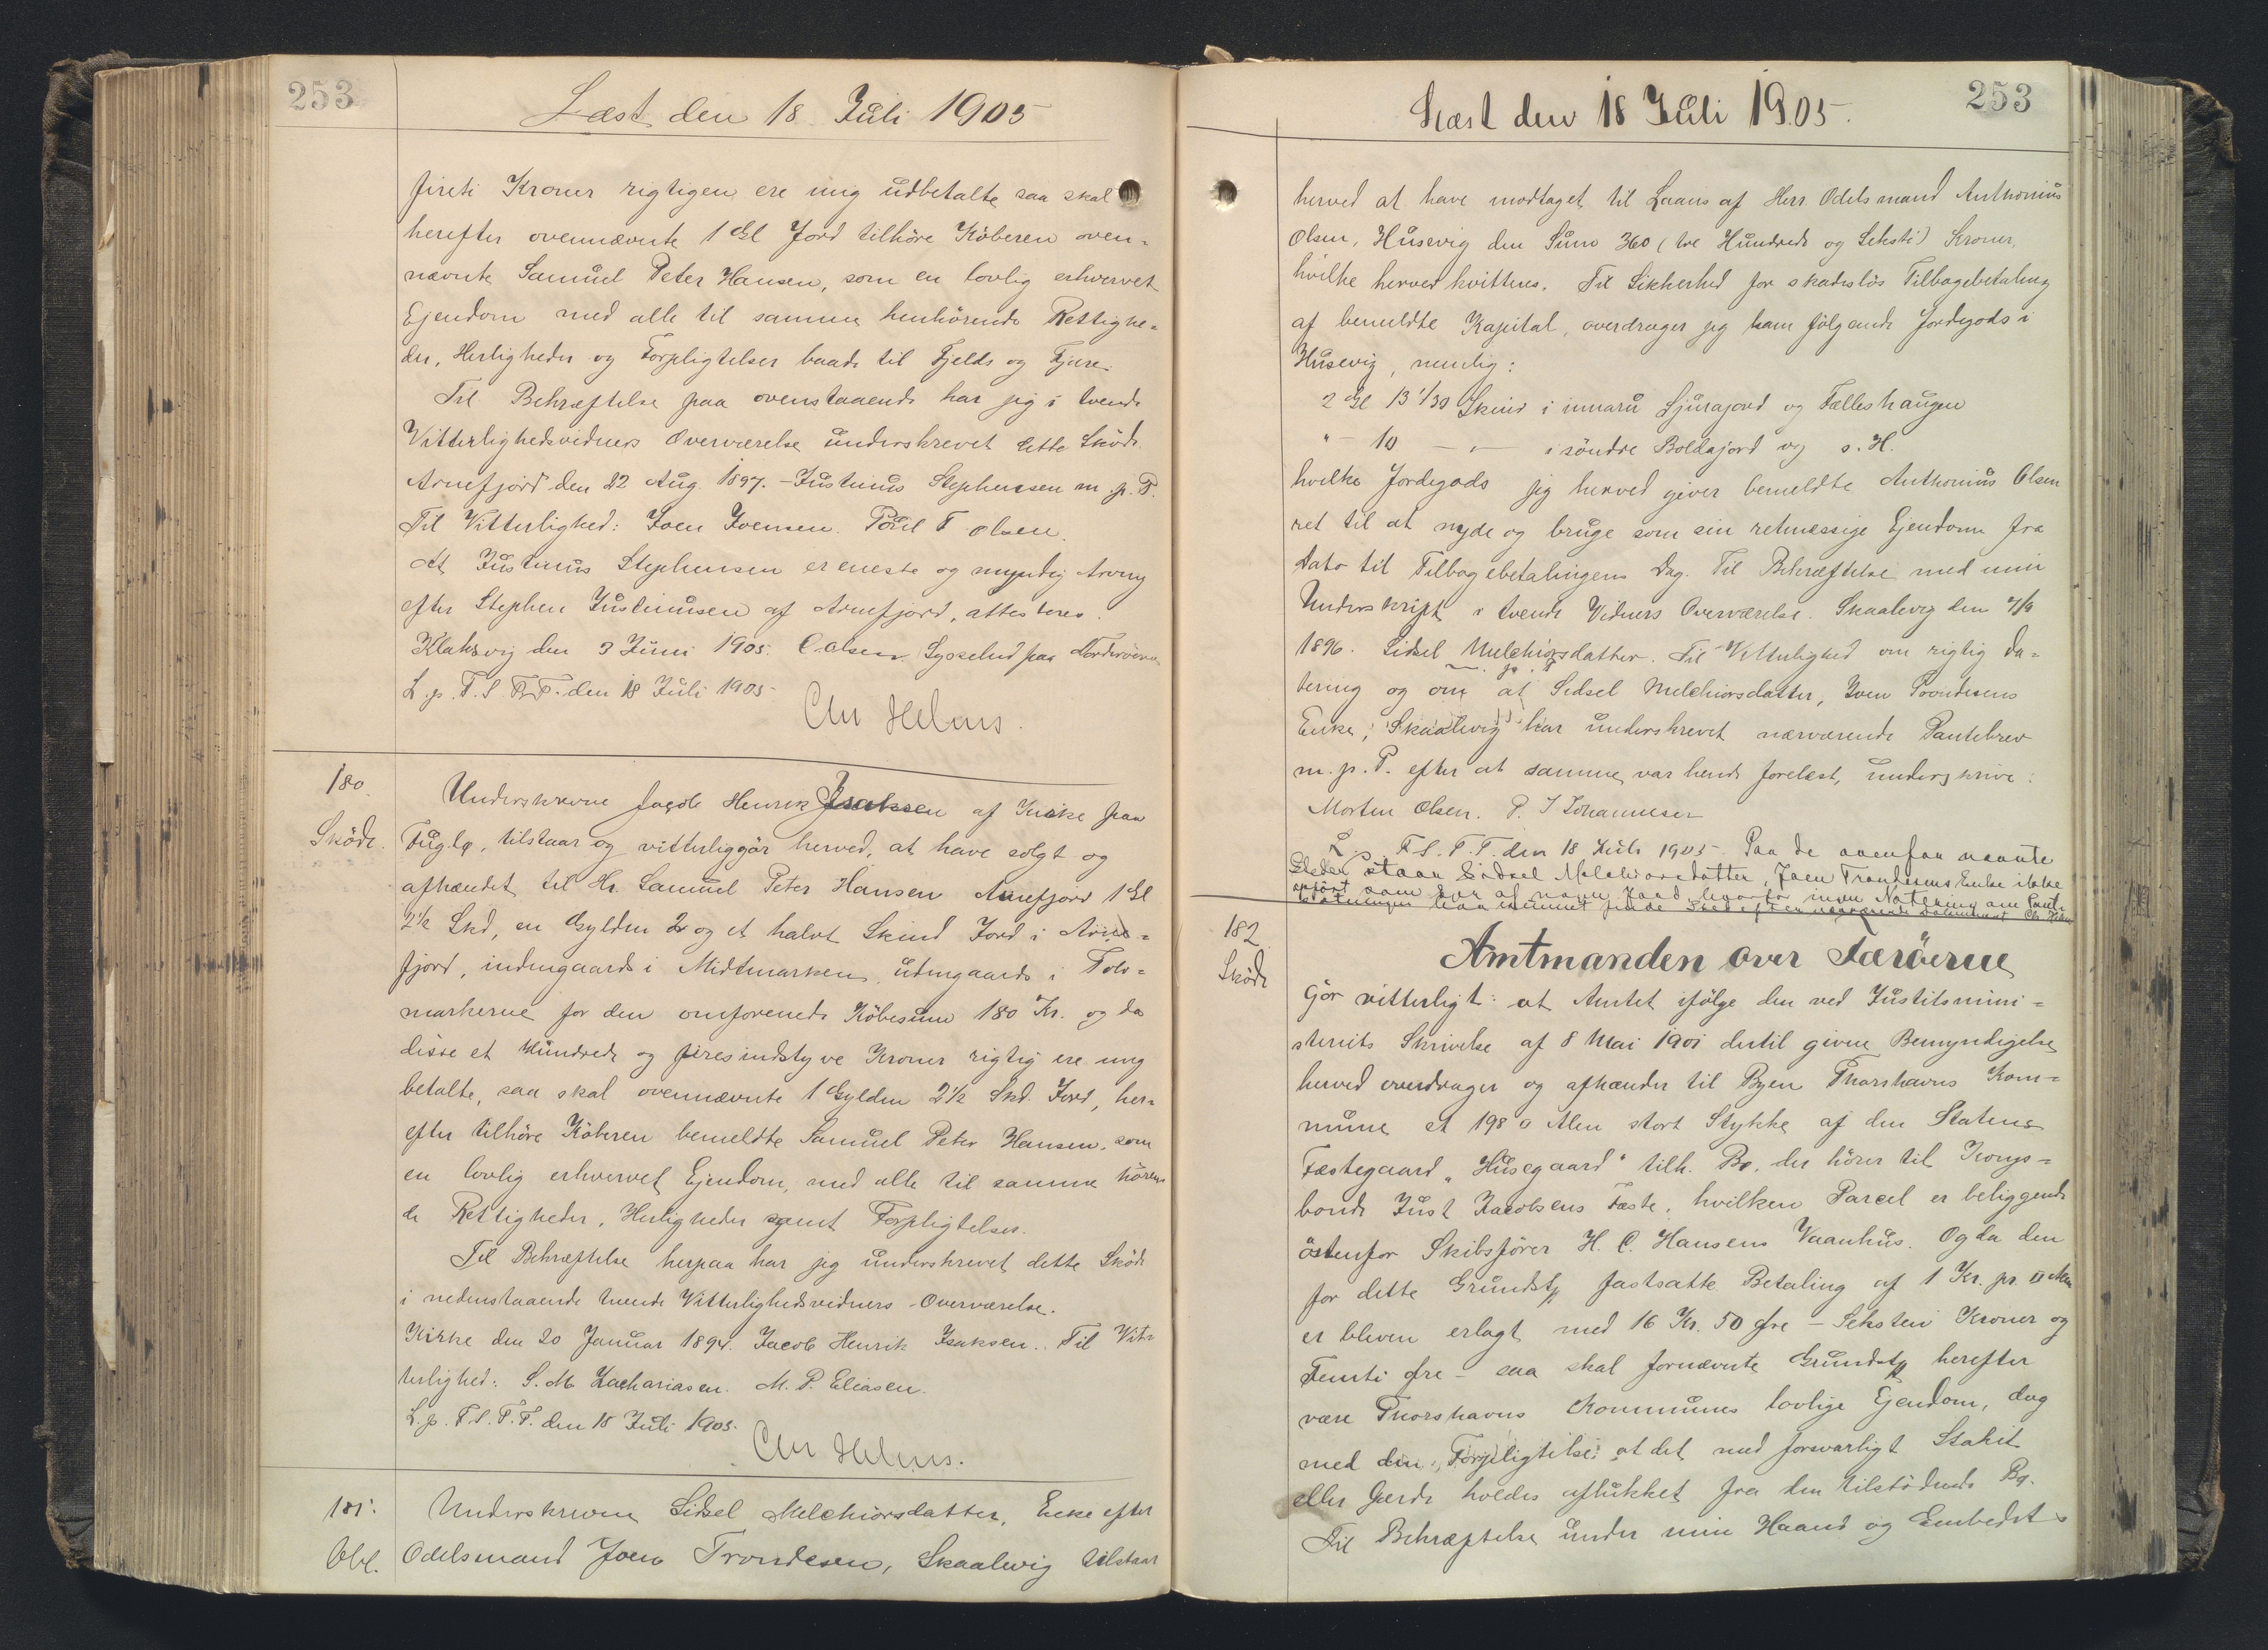 253
Læst den 18 Juli 1905
fireti Kroner rigtigen ere mig udbetalte saa skal
herefter ovennævnte 1 Gl Jord tilhöre Köberen oven=
nævnte Samuel Peter Hansen, som en lovlig erhvervet
Ejendom med alle til samme henhörende Rettighe=
der, Herligheder og Forpligtelser baade til Fjelds og Fjære.
Til Behræftelse paa ovenstaaende har jeg i tvende
Vitterlighedsvidners Overværelse underskrevet dette Sköde.
Arnefjord den 22 Aug. 1897. - Justinus Stephensen m. p. P.
Til Vitterlighed: Joen Joensen. Poul F Olsen.
At Justinus Stephensen er eneste og myndig Arving
efter Stephen Justinusen af Arnefjord, attesteres.
Klaksvig den 3 Juni 1905. C. Olsen. Sysselmd paa Norderöerne
L. p. F. S. P. T. den 18 Juli 1905
Chr Helms.
180.
Sköde.
Underskrevne Jacob Henrik Isaksen af Kirke paa
Fuglø, tilstaar og vitterliggör herved, at have solgt og
afhændet til Hr. Samuel Peter Hansen Arnefjord 1 Gl
2½ Skd, en Gylden 2 og et halvt Skind Jord i Arne=
fjord, indengaards i Midtmarken, udengaards i
markerne for den omforenede Köbesum 180 Kr. og da
disse et Hundrede og firesindstyve Kroner rigtig ere mig
betalte, saa skal ovennævnte 1 Gylden 2½ Skd. Jord, her=
efter tilhöre Köberen bemeldte Samuel Peter Hansen, som
en lovlig erhvervet Ejendom, med alle til samme hören
de Rettigheder, Herligheder samt Forpligtelser.
Til Behræftelse herpaa har jeg underskrevet dette Sköde
i nedenstaaende tvende Vitterlighedsvidners Overværelse.
Kirke den 20 Januar 1894. Jacob Henrik Isaksen. Til Vit=
terlighed: S. M. Zachariasen. M. P. Eliasen.
L. p. F. S. P. T. den 18 Juli 1905.
Chr Helms.
181.
Obl.
Underskrevne Sidsel Melchiorsdatter, Enke efter
Odelsmand Joen Trondesen, Skaalevig tilstaar
253
Læst den 18 Juli 1905.
herved at have modtaget til Laans af Herr Odelsmand Anthonius
Olsen, Husevig den Sum 360 (tre Hundrede og Seksti) Kroner,
hvilke herved kvitteres. Til Sikkerhed for skadeslös Tilbagebetaling
af bemeldte Kapital, overdrager jeg ham fölgende Jordegods i
Husevig, nemlig:
2 Gl 13 1/30 Skind i innaru Sjurajord og Fælleshaugen
" - 10 - " - i söndre Boldajord og s. H.
hvilke Jordegods jeg herved giver bemeldte Anthonius Olsen
ret til at nyde og bruge som sin retmæssige Ejendom fra
Dato til Tilbagebetalingens Dag. Til Behræftelse med min
Underskript i tvende Vidners Overværelse. Skaalevig den
1896. Sidsel Melchiorsdatter. Til Vitterlighed om rigtig Da=
m. p. P.
tering og om at Sidsel Melchiorsdatter, Joen Trondesens
Enke, Skaalevig har underskrevet nærværende Pantebrev
m. p. P. efter at samme var hende forelæst, underskrive:
Morten Olsen. P. J Johannesen
L. p. F. S. P. T. den 18 Juli 1905. Paa de ovenfor nævnte
Steder staar Sidsel Melchiorsdatter, Joen Trondesens Enke ikke
opfört som Ejer af nævn Jord, hvorfor ingen Notering om Pant-
sætningen har kunnet finde Sted efter nærværende Dokument Chr Helms
182
Sköde
Amtmanden over Færöerne
Gör vitterligt: at Amtet ifölge den ved Justitsmini=
steriets Skrivelse af 8 Mai 1901 dertil givne Bemyndigelse
herved overdrager og afhænder til Byen Thorshavns Kom=
mune et 198 □ Alen stort Stykke af den Statens
Fæstegaard "Husegaard" tilh. Bø, der hörer til Kongs=
bonde Just Jacobsens Fæste, hvilken Parcel er beliggende
östenfor Skibsförer H. C. Hansens Vaanhus. Og da den
for dette Grundst. fastsatte Betaling af 1 Kr. pr. □ Alen
er bleven erlagt med 16 Kr. 50 Øre - Seksten Kroner og
Femti Øre - saa skal fornævnte Grundst. herefter
være Thorshavns Kommunes lovlige Ejendom, dog
med den Forpligtelse: at det med forsvarligt Stakit
eller Gærde holdes aflukket fra den tilstödende Bø.
Til Behræftelse under min Haand og Embedets